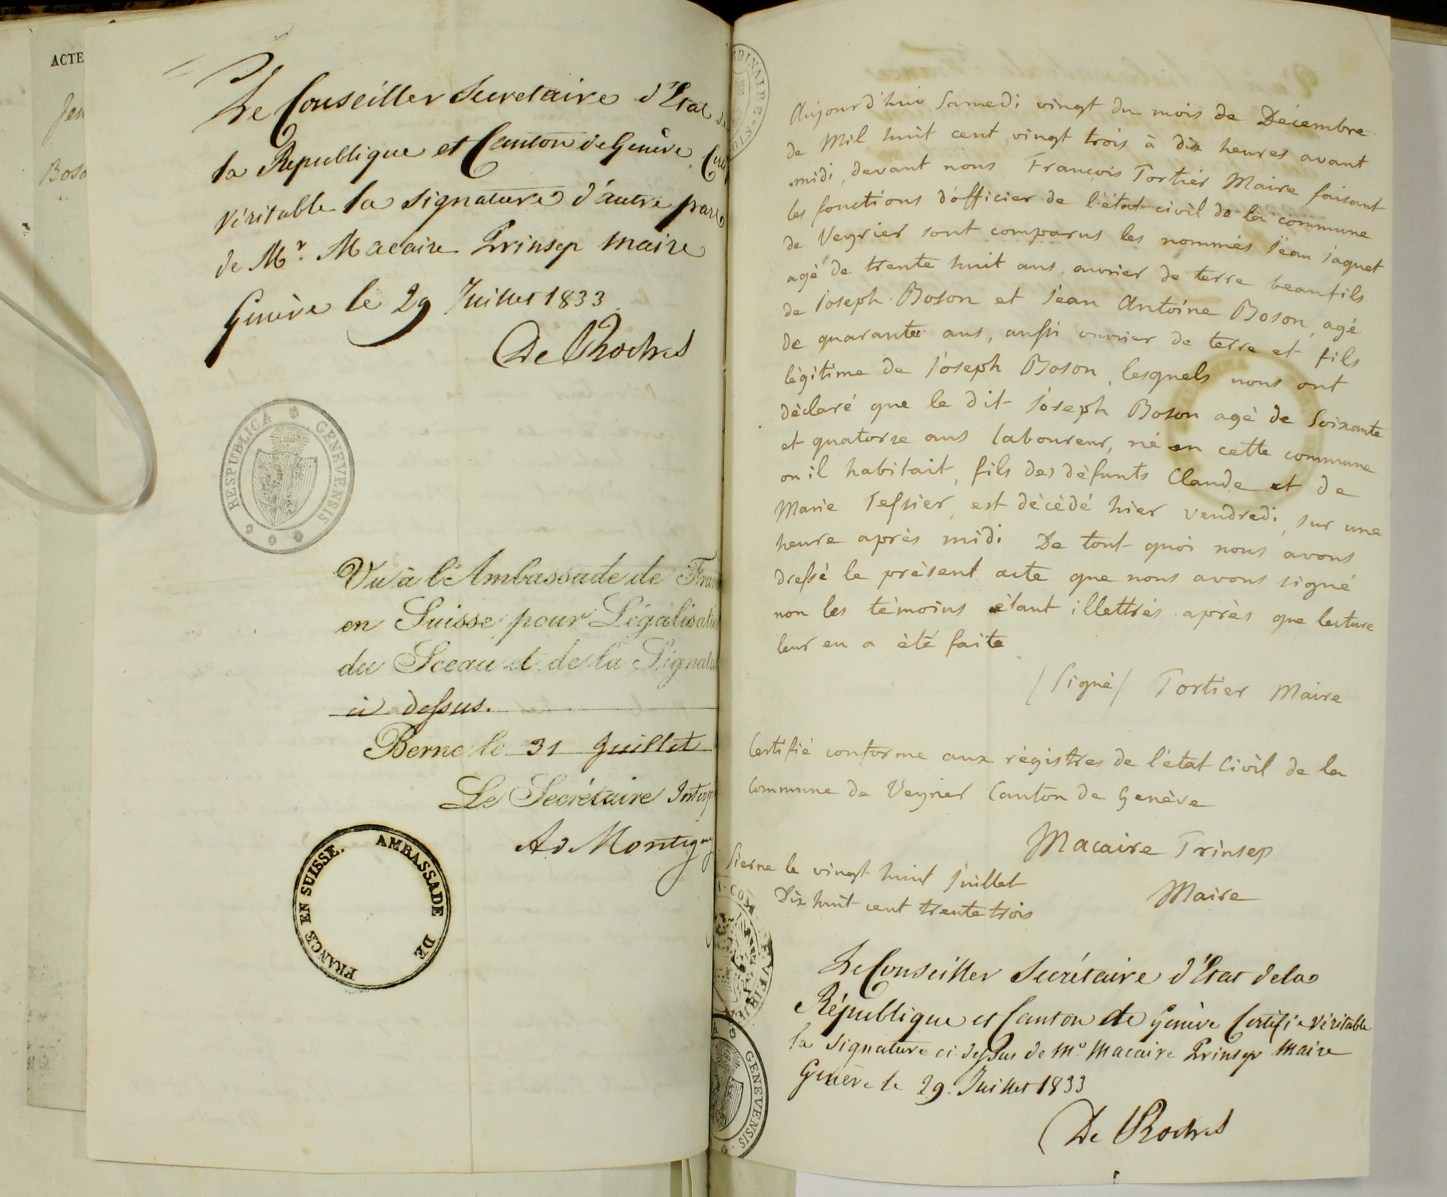 ACTE
Le Conseiller Secretaire d'Etat de
la Republique et Canton de Genève, Cer
véritable la signature d'autre part
de Mr. Macaire Prinsep Maire
Genève le 29 Juillet 1833
De Roches
RESPUBLICA GENEVENSIS
Vu à l'Ambassade de Fran
en Suisse pour Législisati
du Sceau et de la Signat
ci dessus.
Berne le 31 Juillet
Le Secrétaire Interp
Ad Montigny
AMBASSADE DE FRANCE EN SUISSE.
Aujourd'hui Samedi vingt du mois de Décembre
de Mil huit cent vingt trois à dix heures avant
midi, devant nous François Tortier Maire faisant
les fonctions d'officier de l'état civil de la commune
de Veyrier sont comparus les nommés Jean Jaquet
agé de trente huit ans, ouvrier de terre beaufils
de Joseph Boson et Jean Antoine Boson, agé
de quarante ans, aussi ouvrier de terre et fils
légitime de Joseph Boson, lesquels nous ont
déclaré que le dit Joseph Boson agé de Soixante
et quatorze ans laboureur, né en cette commune
ou il habitait, fils des défunts Claude et de
Marie Tessier, est décédé hier vendredi, sur une
heure après midi De tout quoi nous avons
dressé le présent acte que nous avons signé
non les témoins étant illettrés après que lecture
leur en a été faite
/Signé/ Tortier Maire
Certifié conforme aux régistres de l'état Civil de la
Commune de Veyrier Canton de Genève
Macaire Prinsep
Maire
Sierne le vingt huit Juillet
Dix huit cent trente trois
Le Conseiller Secrétaire d'Etat de la
République et Canton de Genève Certifie véritable
la signature ci dessus de Mr. Macaire Prinsep Maire
Genève le 29. Juillet 1833
De Roches
GENEVENSIS